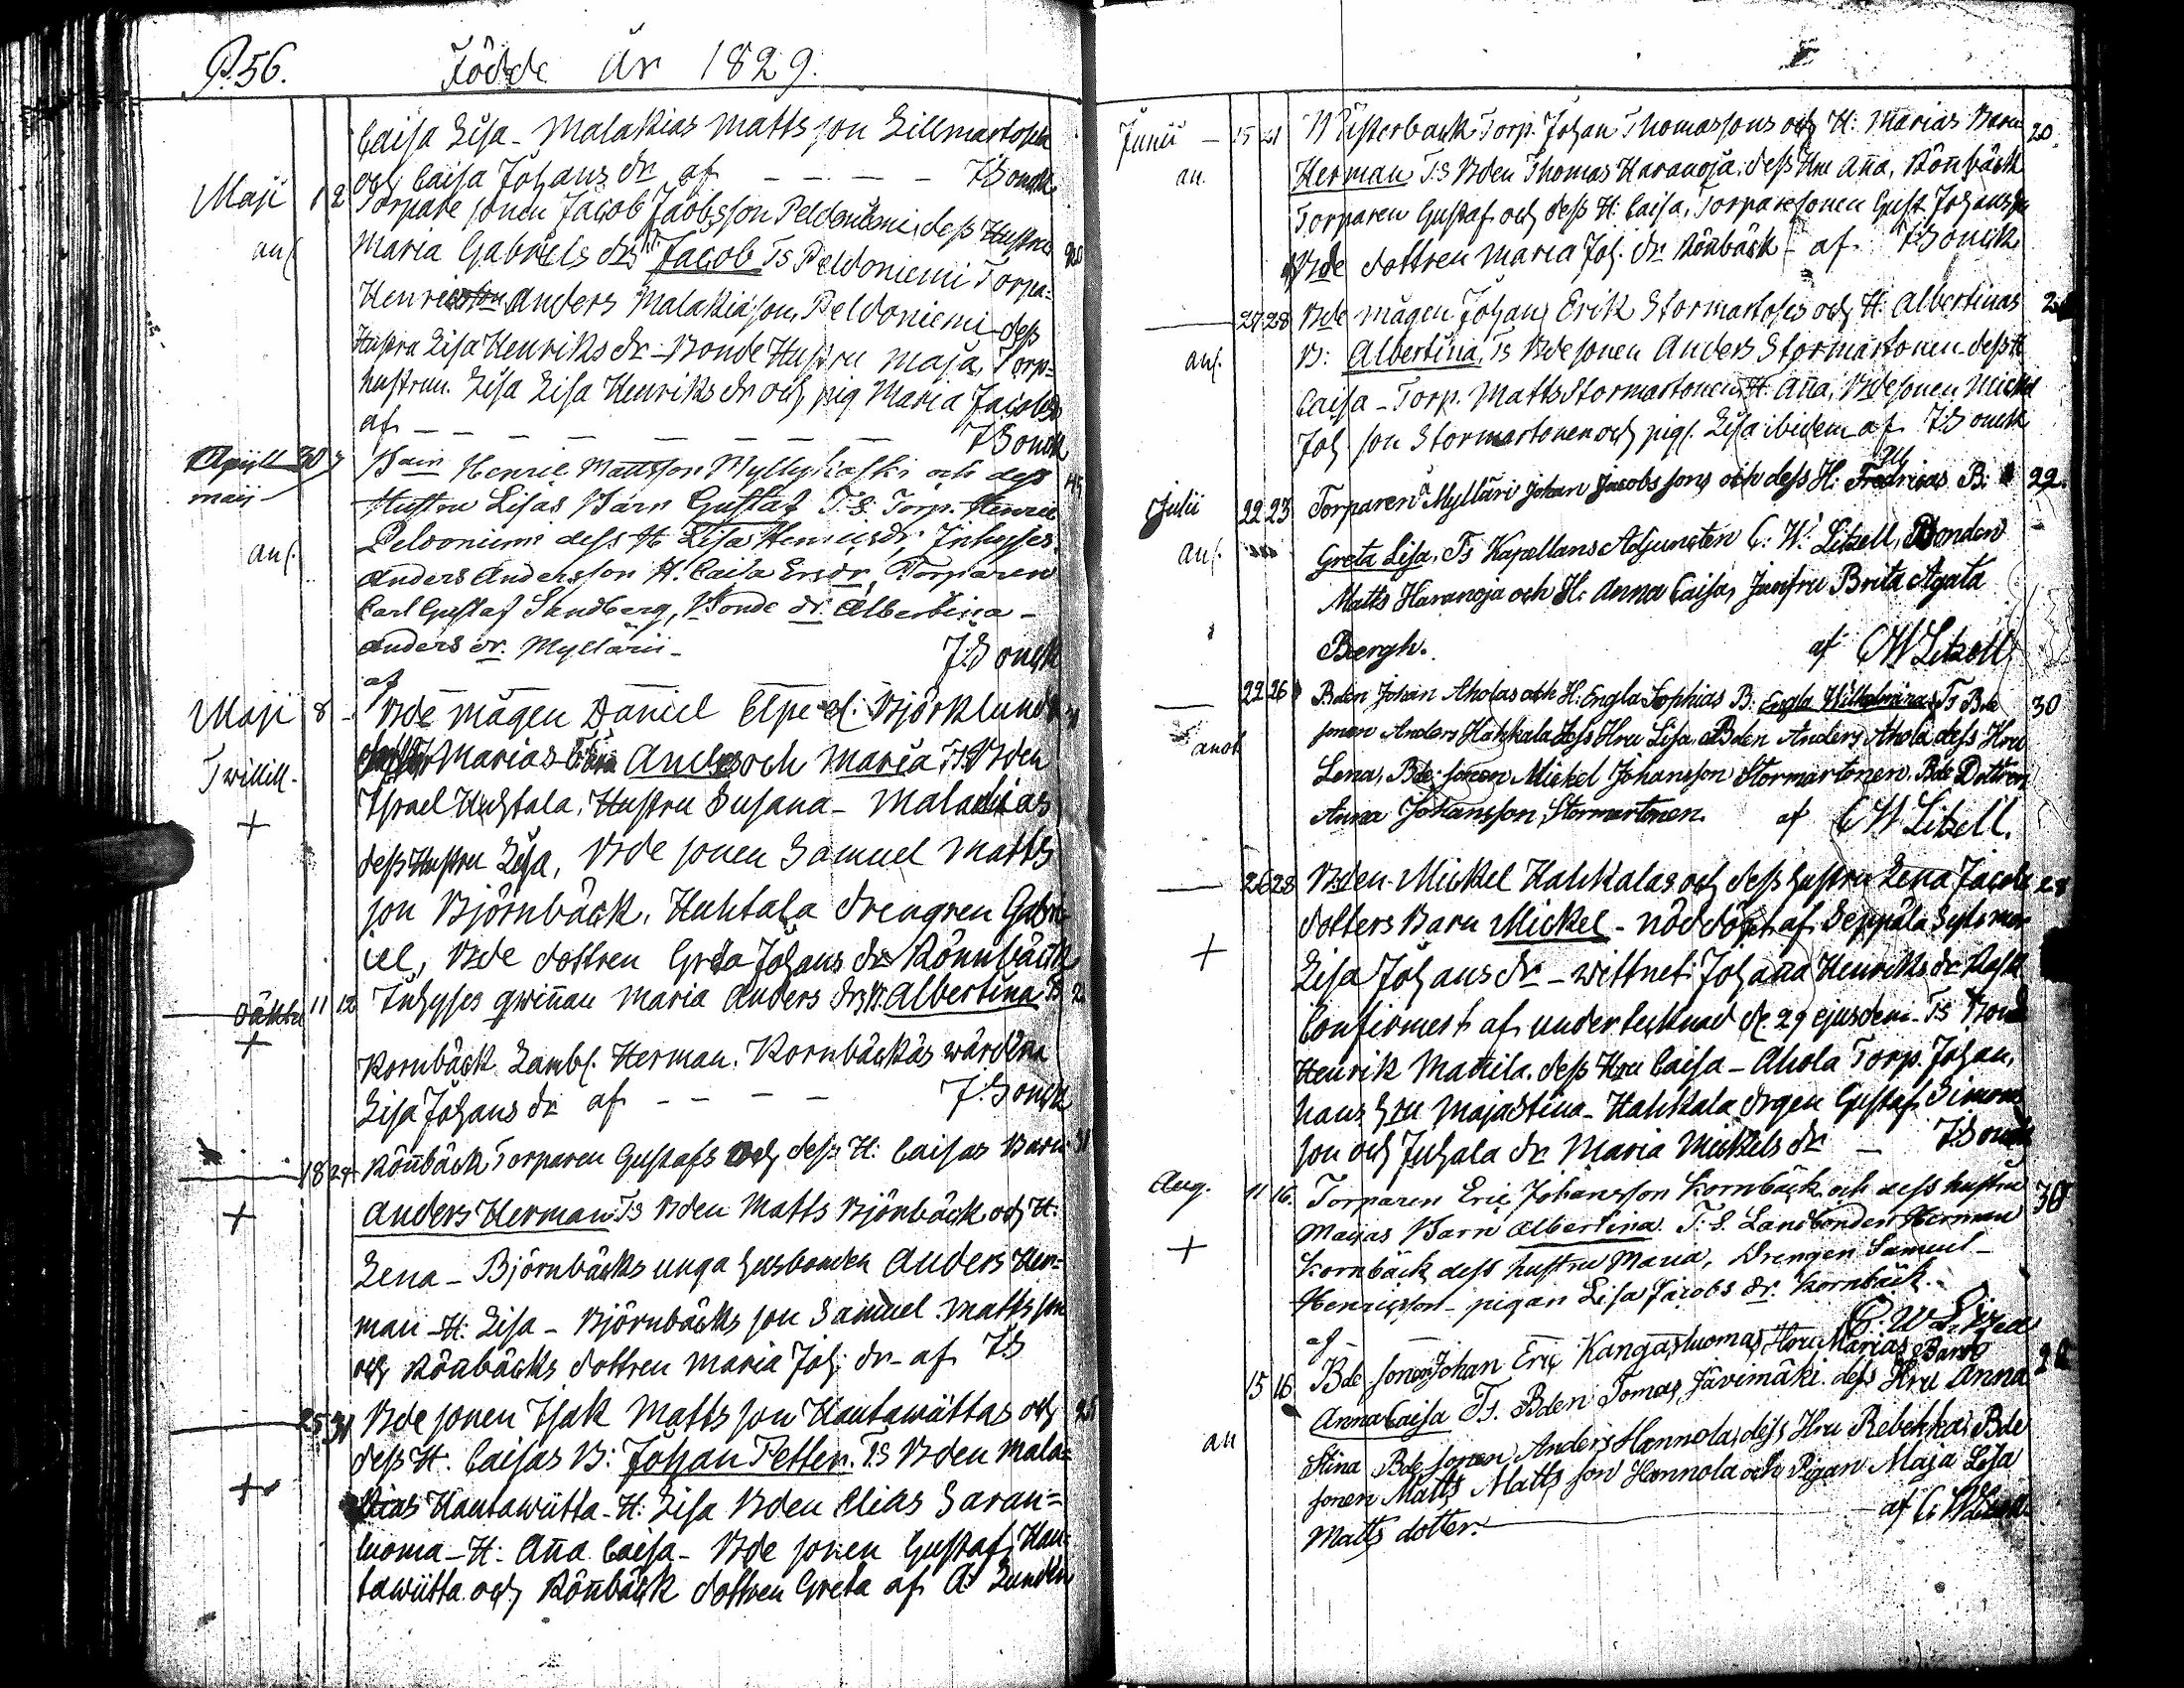 P. 56. Födde år 1829.
Caisa Lisa - Malakias Matts son Lillmartosen
och Caisa Johans dr af - - - - J Bonck
Maji 1 2 Torpare sonen Jacob Jacobsson Peldoniemi, dess Hustru
anf Maria Gabriels drs Jacob Ts Peldoniemi Torpa=
Henricsson Anders Malakiason, Peldoniemi dess
Hustru Lisa Henriks dr - Bonde Hustru Maja, Torp=
hustrun. Lisa Lisa Henriks dr och pig Maria Jacobsdr
af - - - - - - - J Bonck
Aprill 30 7 Henric Mattsson Myllykoski och dess 45
maij Hustru Lisas Barn Gustaf T.S. Torp. Henric
anf. Peldoniemi dess H Lisa Henricsdr, Inhyses
Anders Andersson H. Caisa Ersdr, Torparen
Carl Gustaf Sandberg, Bonde dr. Albertina -
Anders dr. Myllärii -
af J: Bonck
Maji 8 - Bde mågen Daniel Björklunds
Twillin. Marias Anders och Maria Ts Bden
+ Israel Huhtala, Hustru Susana - Malachias
dess Hustru Lisa, Bde sonen Samuel Matts
son Björnbäck, Huhtala drengen Gabri
iel, Bde dottren Greta Johans dr Rönnbäck
oäkta 11 12 Inhyses qwinnan Maria Anders drs B. Albertina Ts
+ Kornbäck Lamb. Herman. Kornbäckäs wärdina
Lisa Johans dr af - - - - J. Bonck
18 24 Rönbäck Torparen Gustafs och dess H: Caisas Barn 31
+ Anders Herman Ts Bden Matts Björnbäck och H:
Lena - Björnbäcks unga husbonden Anders Her=
man - H: Lisa - Björnbäcks son Samuel Matts son
och Rönbäcks dottren Maria Joh: dr - af J:B
25 31 Bde sonen Isak Matts son Hautawiittas och
dess H. Caisas B: Johan Petter. Ts Bden Mala=
+ kias Hautawiitta - H: Lisa Bden Elias Saran=
luoma - H: Anna Caisa - Bde sonen Gustaf Hau
tawiitta och Rönbäck dottren Greta af A: Lundén
Junii - 15 21 Westerback Torp. Johan Thomassons och H: Marias Barn 20
an. Herman T:s Bden Thomas Haranoja, dess Hru Anna, Rönbäck
Torparen Gustaf och dess H: Caisa, Torparesonen Gust Johansson
Bde dottren Maria Joh. dr Rönbäck - af J: Bonck
27 28 Bde mågen Johan Erik Stormartoses och H. Albertinas
anf. B: Albertina, Ts Bde sonen Anders Stormartonen dess H
Caisa - Torp. Matts Stormartonen, H: Anna, Bde sonen Mickel
Joh son Stormartonen och pig. Lisa ibidem af J:Bonck
Julii 22 23 Torparen Mylläri Johan Jacobs sons och dess H: Fredricas B: 22.
anf. Greta Lisa, Ts Kapellans Adjuncten C: W: Litzell, Bonden
Matts Haranoja och H: Anna Caisa, Jungfru Brita Agata
Bergh. af CW Litzell
22 26 Bden Johan Aholas och H: Engla Sophias B: Engla Wilhelmina, Ts Bde 30
sonen Anders Hahkala dess Hru Lisa Bden Anders Ahola dess Hru
Lena, Bde sonen Mickel Johansson Stormartonen. Bde Dottren
Anna Johansson Stormartonen. af CW Litzell.
26 28 Bden Mickel Hahkalas och dess hustru Lena Jacobs 28
dotters Barn Mickel - nöddöpt af Seppälä
+ Lisa Johans dr - wittnet: Johanna Henriks dr Rask
Confirmert af undertecknad d: 29 ejusdem - Ts Bond
Henrik Mattila. dess Hru Caisa - Ahola Torp. Johan,
hans Hru Maja Stina - Hahkala drgen Gustaf Simons
son och Juhala dr Maria Mickels dr - J: Bonck
Aug. 11 16. Torparen Eric Johansson Kornbäck och dess hustru 30
Marias Barn Albertina. T: S. Landbonden Herman
+ Kornbäck dess hustru Maria, Drengen Samuel -
Henricsson - pigan Lisa Jacobs dr. Kornbäck.
af - C. W. Litzell
15 16 Bde sonen Johan Eric Kangasluomas Hru Marias Barn
Anna Caisa Ts. Bden Tomas Järvimäki. dess Hru Anna
an Stina Bde sonen, Anders Hannola, dess Hru Rebekka, Bde
sonen Matts Matts son Hannola och Pigan Maja Lisa
Matts dotter. af C W Litzell